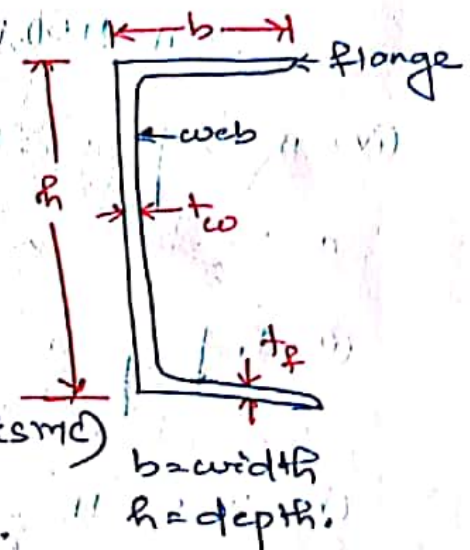 b
flange
web
h
tw
tf
b = width
h = depth.